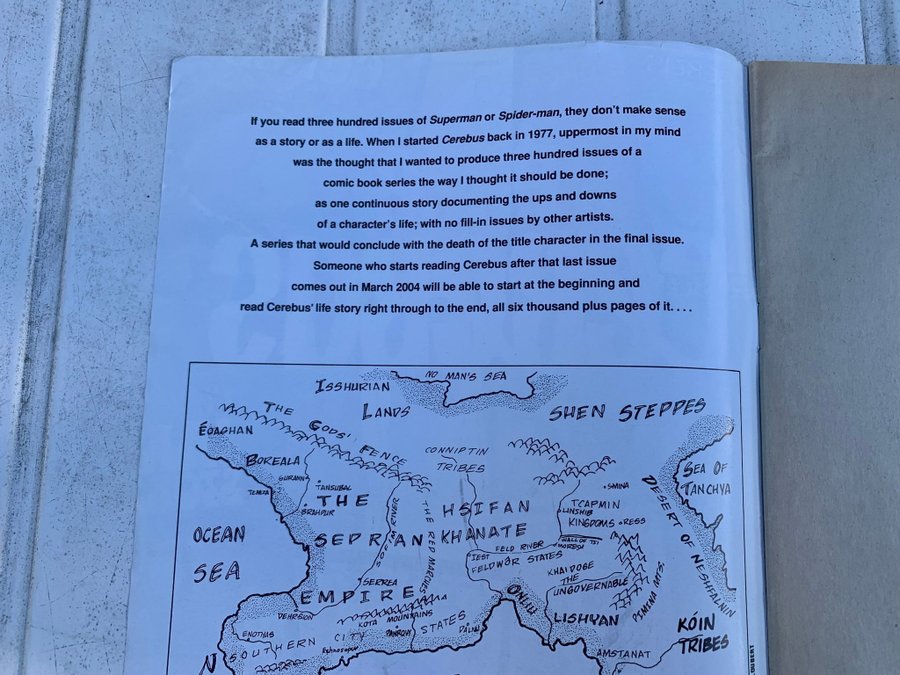 If you read three hundred issues of Superman or Spider-man, they don't make sense
as a story or as a life. When I started Cerebus back in 1977, uppermost in my mind
was the thought that I wanted to produce three hundred issues of a
comic book series the way I thought it should be done;
as one continuous story documenting the ups and downs
of a character's life; with no fill-in issues by other artists.
A series that would conclude with the death of the title character in the final issue.
Someone who starts reading Cerebus after that last issue
comes out in March 2004 will be able to start at the beginning and
read Cerebus' life story right through to the end, all six thousand plus pages of it. . . .
NO MAN'S SEA
ISSHURIAN
LANDS
SHEN STEPPES
THE GODS' FENCE
EOAGHAN
CONNIPTIN
TRIBES
BOREALA
SEA OF
TANCHYA
TANSUBAL
THE
SEPRAN
EMPIRE
BRAHPUR
HSIFAN
KHANATE
THE RED MARCHES
TCAPMIN
KINGDOMS
LINSHIB
RESS
DESERT OF NESHFALNIN
OCEAN
SEA
WALL OF TSI
IEST
FELD RIVER
FELDWAR STATES
KHAIDOGE
THE
UNGOVERNABLE
SERREA
ONLIU
LISHYAN
KOTA MOUNTAINS
ENOTHIS
SOUTHERN CITY STATES
KÓIN
TRIBES
AMSTANAT